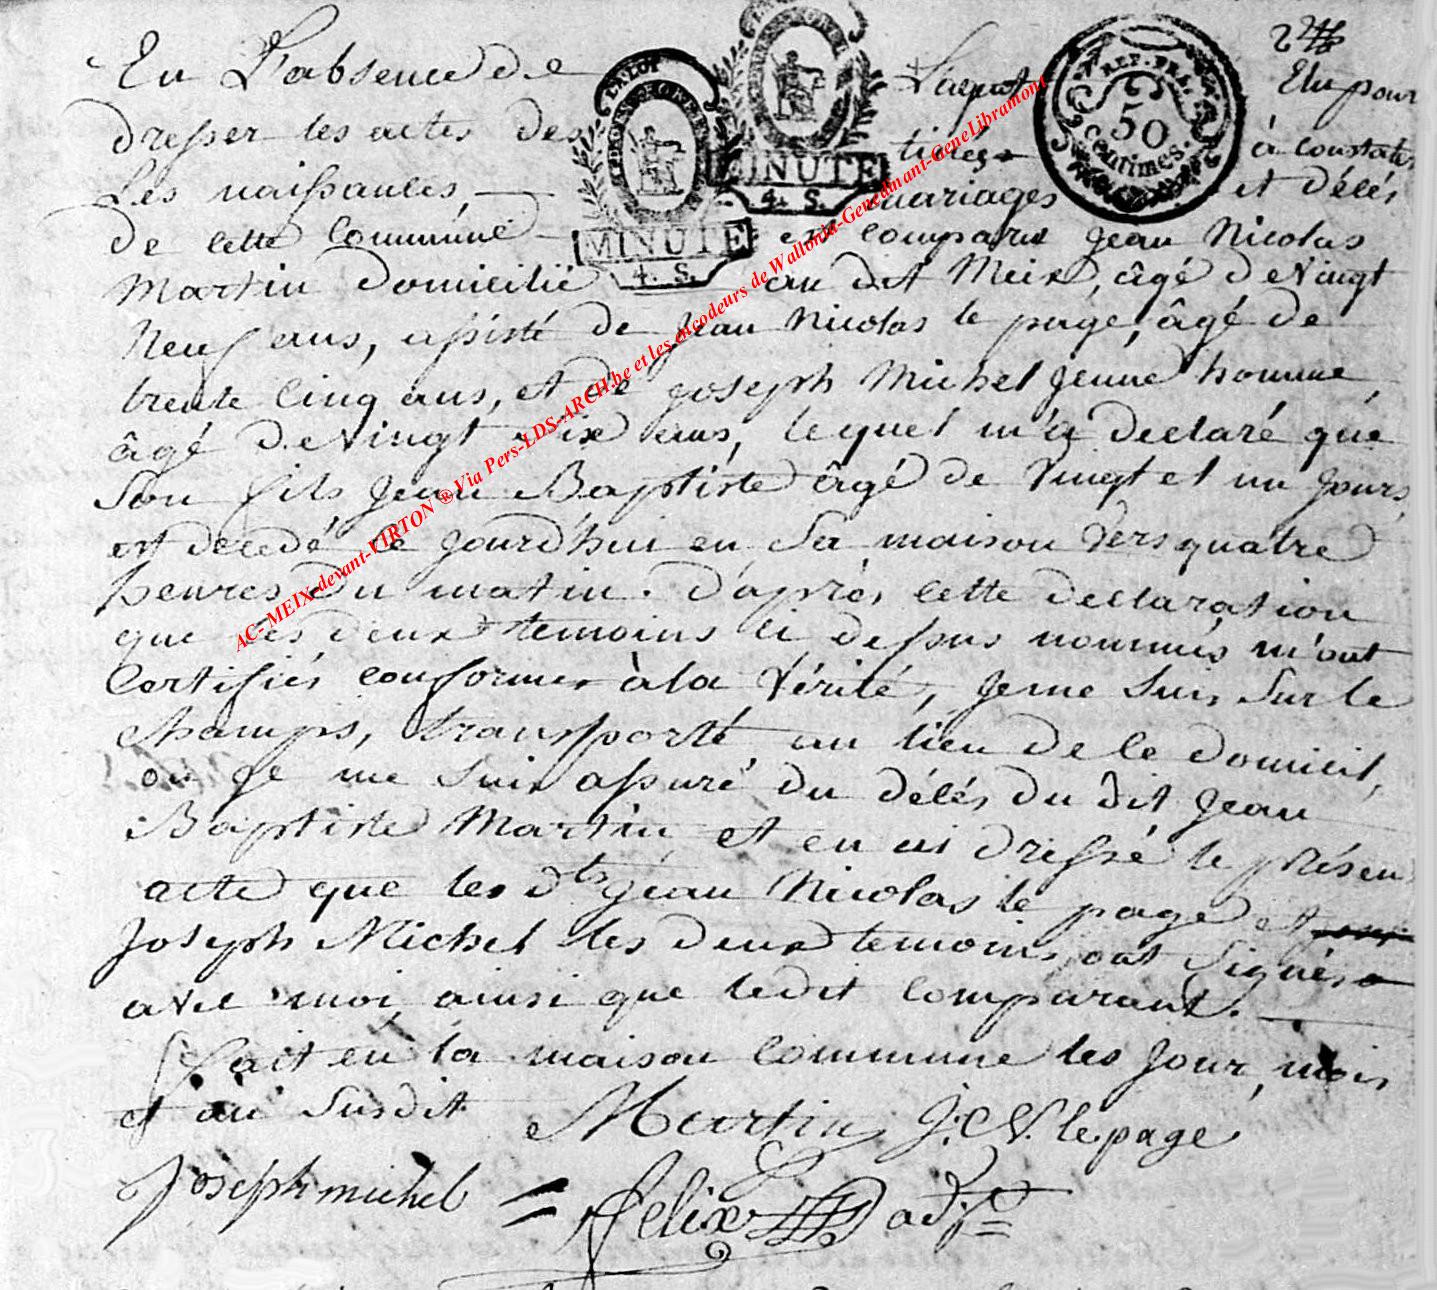 2
En L'absence de L'agent Elu pour
dresser les actes des tinés à constater
Les naissances, mariages et décés
de cette Commune est comparu Jean Nicolas
Martin domicilié au dit Meix, âgé de Vingt
Neuf ans, assisté de Jean Nicolas le page, âgé de
trente Cinq ans, et de Joseph Michel Jeune homme,
âgé de Vingt six ans, lequel m'a declaré que
Son fils Jean Baptiste âgé de Vingt et un Jours,
est decedé ce Jourd'hui en Sa maison Vers quatre
heures du matin. d'aprés cette declaration
que les deux temoins ci dessus nommés m'ont
Certifiés conforme à la Vérité, Je me Suis Sur le
champs, transporté au lieu de ce domicil,
ou Je me Suis assuré du décés du dit Jean
Baptiste Martin, et en ai dressé le présen
acte que les dts Jean Nicolas le page et
Joseph Michel les deux temoins ont Signés
avec moi, ainsi que ledit Comparant.
fait en la maison Commune les Jour, mois
et an Susdit
Martin J. N. le page
Joseph michel = felix adjt
LA LOI
MINUTE
4. S.
MINUTE
4. S.
REP. FRA.
50
centimes.
AC- MEIX-devant-VIRTON ® Via Pers-LDS-ARCH.be et les encodeurs de Wallonia-Genedinant-GeneLibramont